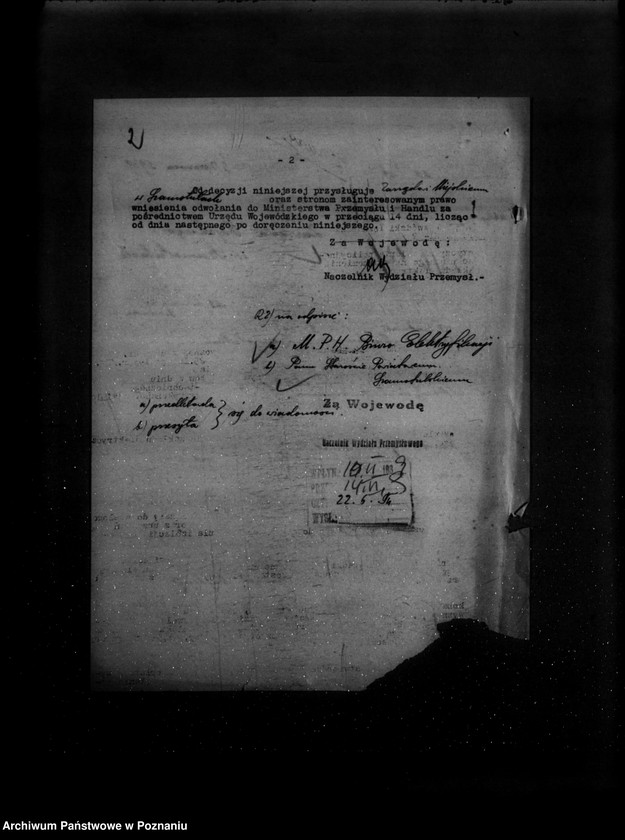 2)
- 2 -
Od decyzji niniejszej przysługuje Zarządowi Miejskiemu
w Szamotułach oraz stronom zainteresowanym prawo
wniesienia odwołania do Ministerstwa Przemysłu i Handlu za
pośrednictwem Urzędu Wojewódzkiego w przeciągu 14 dni, licząc
od dnia następnego po doręczeniu niniejszego.
Za Wojewodę:
Naczelnik Wydziału Przemysł.-
na odpisie:
a) M.P.H. Biuro Elektryfikacji
b) Panu Staroście Powiatowemu
a) przedkłada
b) przesyła
się do wiadomości.
Za Wojewodę
Naczelnik Wydziału Przemysłowego
22. 5.
Archiwum Państwowe w Poznaniu